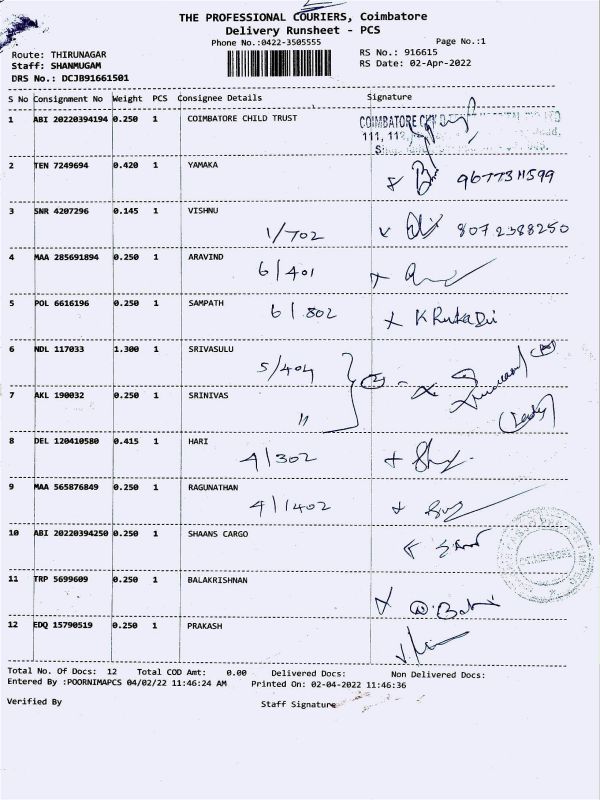 THE PROFESSIONAL COURIERS, Coimbatore
Delivery Runsheet - PCS
Phone No.:0422-3505555 Page No.:1
Route: THIRUNAGAR RS No.: 916615
Staff: SHANMUGAM RS Date: 02-Apr-2022
DRS No.: DCJB91661501
S No Consignment No Weight PCS Consignee Details Signature
1 ABI 20220394194 0.250 1 COIMBATORE CHILD TRUST COIMBATORE
111,
2 TEN 7249694 0.420 1 YAMAKA
9677311599
3 SNR 4207296 0.145 1 VISHNU
1/702 8072388250
4 MAA 285691894 0.250 1 ARAVIND
6/401
5 POL 6616196 0.250 1 SAMPATH
6/802
6 NDL 117033 1.300 1 SRIVASULU
5/404
7 AKL 190032 0.250 1 SRINIVAS
"
(Lady)
8 DEL 120410580 0.415 1 HARI
4/302
9 MAA 565876849 0.250 1 RAGUNATHAN
4/1402
10 ABI 20220394250 0.250 1 SHAANS CARGO
11 TRP 5699609 0.250 1 BALAKRISHNAN
12 EDQ 15790519 0.250 1 PRAKASH
Total No. Of Docs: 12 Total COD Amt: 0.00 Delivered Docs: Non Delivered Docs:
Entered By :POORNIMAPCS 04/02/22 11:46:24 AM Printed On: 02-04-2022 11:46:36
Verified By Staff Signature